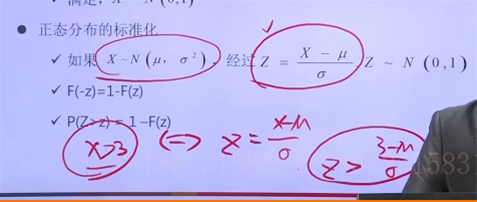 ● 正态分布的标准化
✓ 如果 X~N(μ, σ²), 经过 Z = (X − μ)/σ Z ~ N (0,1)
✓ F(-z)=1-F(z)
✓ P(Z>z) = 1 –F(z)
x>3 ⟺ z = (x-μ)/σ z > (3-μ)/σ